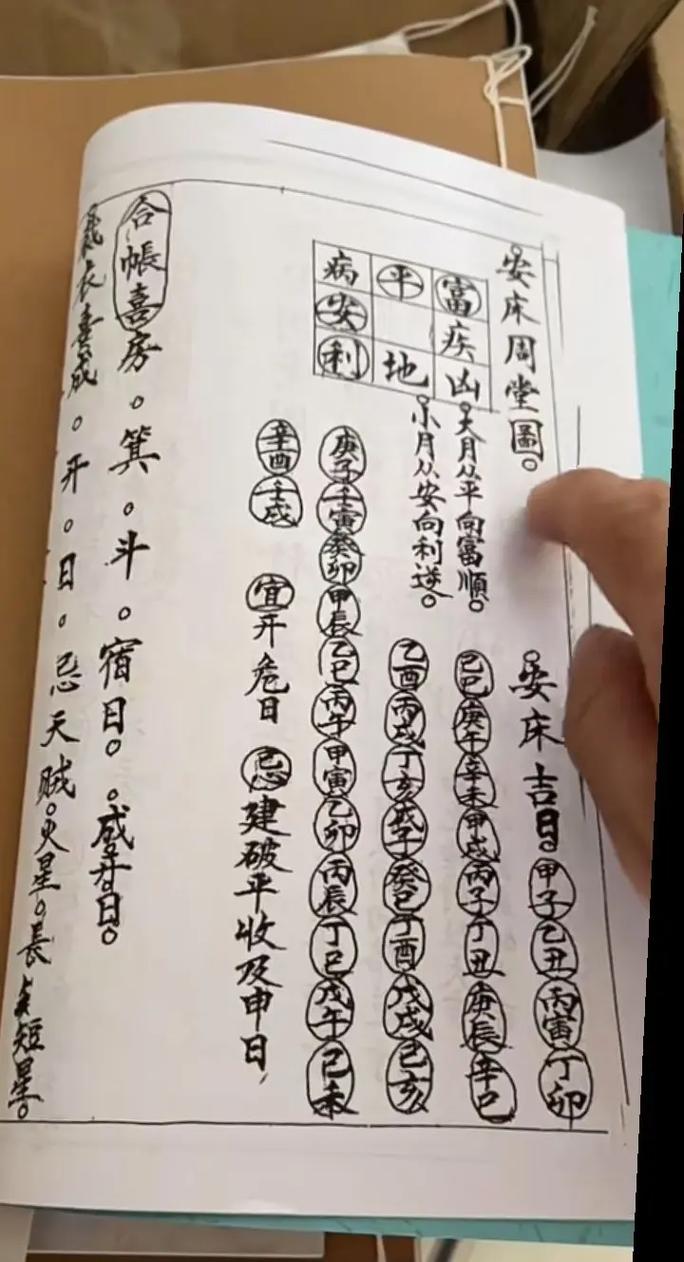 安床周堂圖。
富平病
疾安
凶地利
大月从平向富順。
小月从安向利逆。
安床吉日。甲子乙丑丙寅丁卯
己巳庚午辛未甲戌丙子丁丑庚辰辛巳
乙酉丙戌丁亥戊子癸巳丁酉戊戌己亥
庚子壬寅癸卯甲辰乙巳丙午甲寅乙卯丙辰丁巳戊午己未
辛酉壬戌 宜开危日 忌建破平收及申日,
合帳喜房。箕。斗。宿日。成开日。
裁衣喜成。开。日。忌天贼。火星。長短星。